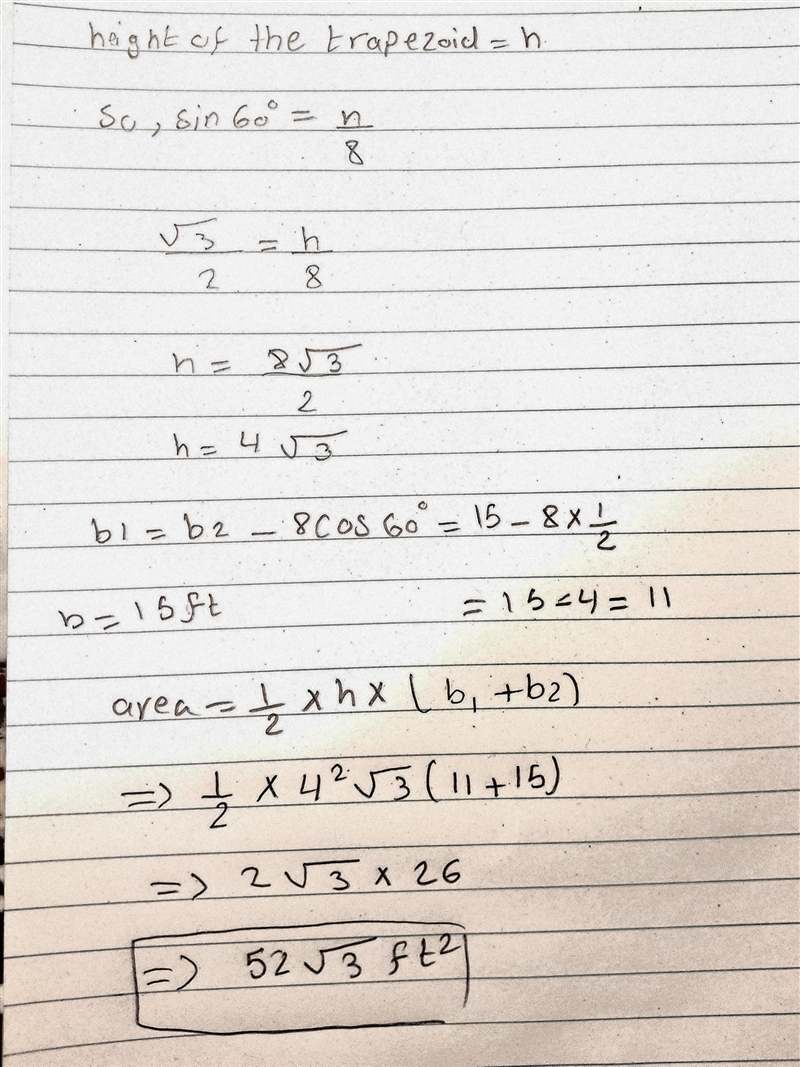 height of the trapezoid = h
So, sin 60° = h/8
√3/2 = h/8
h = 8√3/2
h = 4√3
b1 = b2 - 8cos 60° = 15 - 8 × 1/2
b = 15 ft = 15 - 4 = 11
area = 1/2 × h × (b₁ + b2)
=> 1/2 × 4²√3 (11 + 15)
=> 2√3 × 26
=> 52√3 ft²